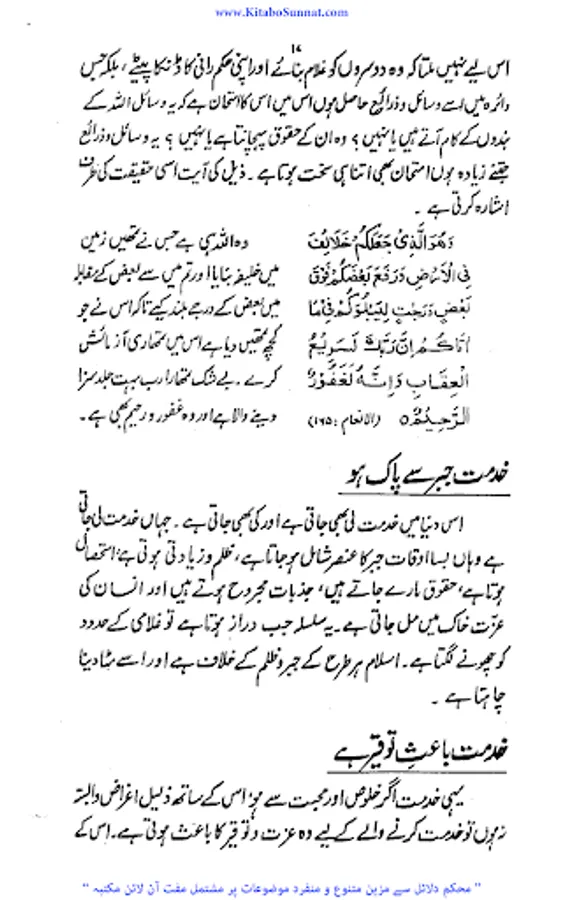 www.KitaboSunnat.com
۱۷
اس لیے نہیں ملتا کہ وہ دوسروں کو غلام بنائے اور اپنی حکم رانی کا ڈنکا پیٹے، بلکہ جس
دائرہ میں اسے وسائل و ذرائع حاصل ہوں اس میں اس کا امتحان ہے کہ یہ وسائل اللہ کے
بندوں کے کام آتے ہیں یا نہیں؟ وہ ان کے حقوق پہچانتا ہے یا نہیں؟ یہ وسائل و ذرائع
جتنے زیادہ ہوں امتحان بھی اتنا ہی سخت ہوتا ہے۔ ذیل کی آیت اسی حقیقت کی طرف
اشارہ کرتی ہے۔
وَهُوَ الَّذِيْ جَعَلَكُمْ خَلَائِفَ
فِي الْاَرْضِ وَرَفَعَ بَعْضَكُمْ فَوْقَ
بَعْضٍ دَرَجٰتٍ لِّيَبْلُوَكُمْ فِيْ مَا
اٰتَاكُمْ اِنَّ رَبَّكَ سَرِيْعُ
الْعِقَابِ وَاِنَّهٗ لَغَفُوْرٌ
الرَّحِيْمٌ ٥ (الانعام :۱۶۵)
وہ اللہ ہی ہے جس نے تمھیں زمین
میں خلیفہ بنایا اور تم میں سے بعض کے مقابلہ
میں بعض کے درجے بلند کیے تاکہ اس نے جو
کچھ تمھیں دیا ہے اس میں تمھاری آزمائش
کرے۔ بے شک تمھارا رب بہت جلد سزا
دینے والا ہے اور وہ غفور و رحیم بھی ہے۔
خدمت جبر سے پاک ہو
اس دنیا میں خدمت لی بھی جاتی ہے اور کی بھی جاتی ہے۔ جہاں خدمت لی جاتی
ہے وہاں بسا اوقات جبر کا عنصر شامل ہو جاتا ہے، ظلم و زیادتی ہوتی ہے، استحصال
ہوتا ہے، حقوق مارے جاتے ہیں، جذبات مجروح ہوتے ہیں اور انسان کی
عزت خاک میں مل جاتی ہے۔ یہ سلسلہ جب دراز ہوتا ہے تو غلامی کے حدود
کو چھونے لگتا ہے۔ اسلام ہر طرح کے جبر و ظلم کے خلاف ہے اور اسے مٹا دینا
چاہتا ہے۔
خدمت باعثِ توقیر ہے
یہی خدمت اگر خلوص اور محبت سے ہو، اس کے ساتھ ذلیل اغراض وابستہ
نہ ہوں تو خدمت کرنے والے کے لیے وہ عزت و توقیر کا باعث ہوتی ہے۔ اس کے
" محکم دلائل سے مزین متنوع و منفرد موضوعات پر مشتمل مفت آن لائن مکتبہ "